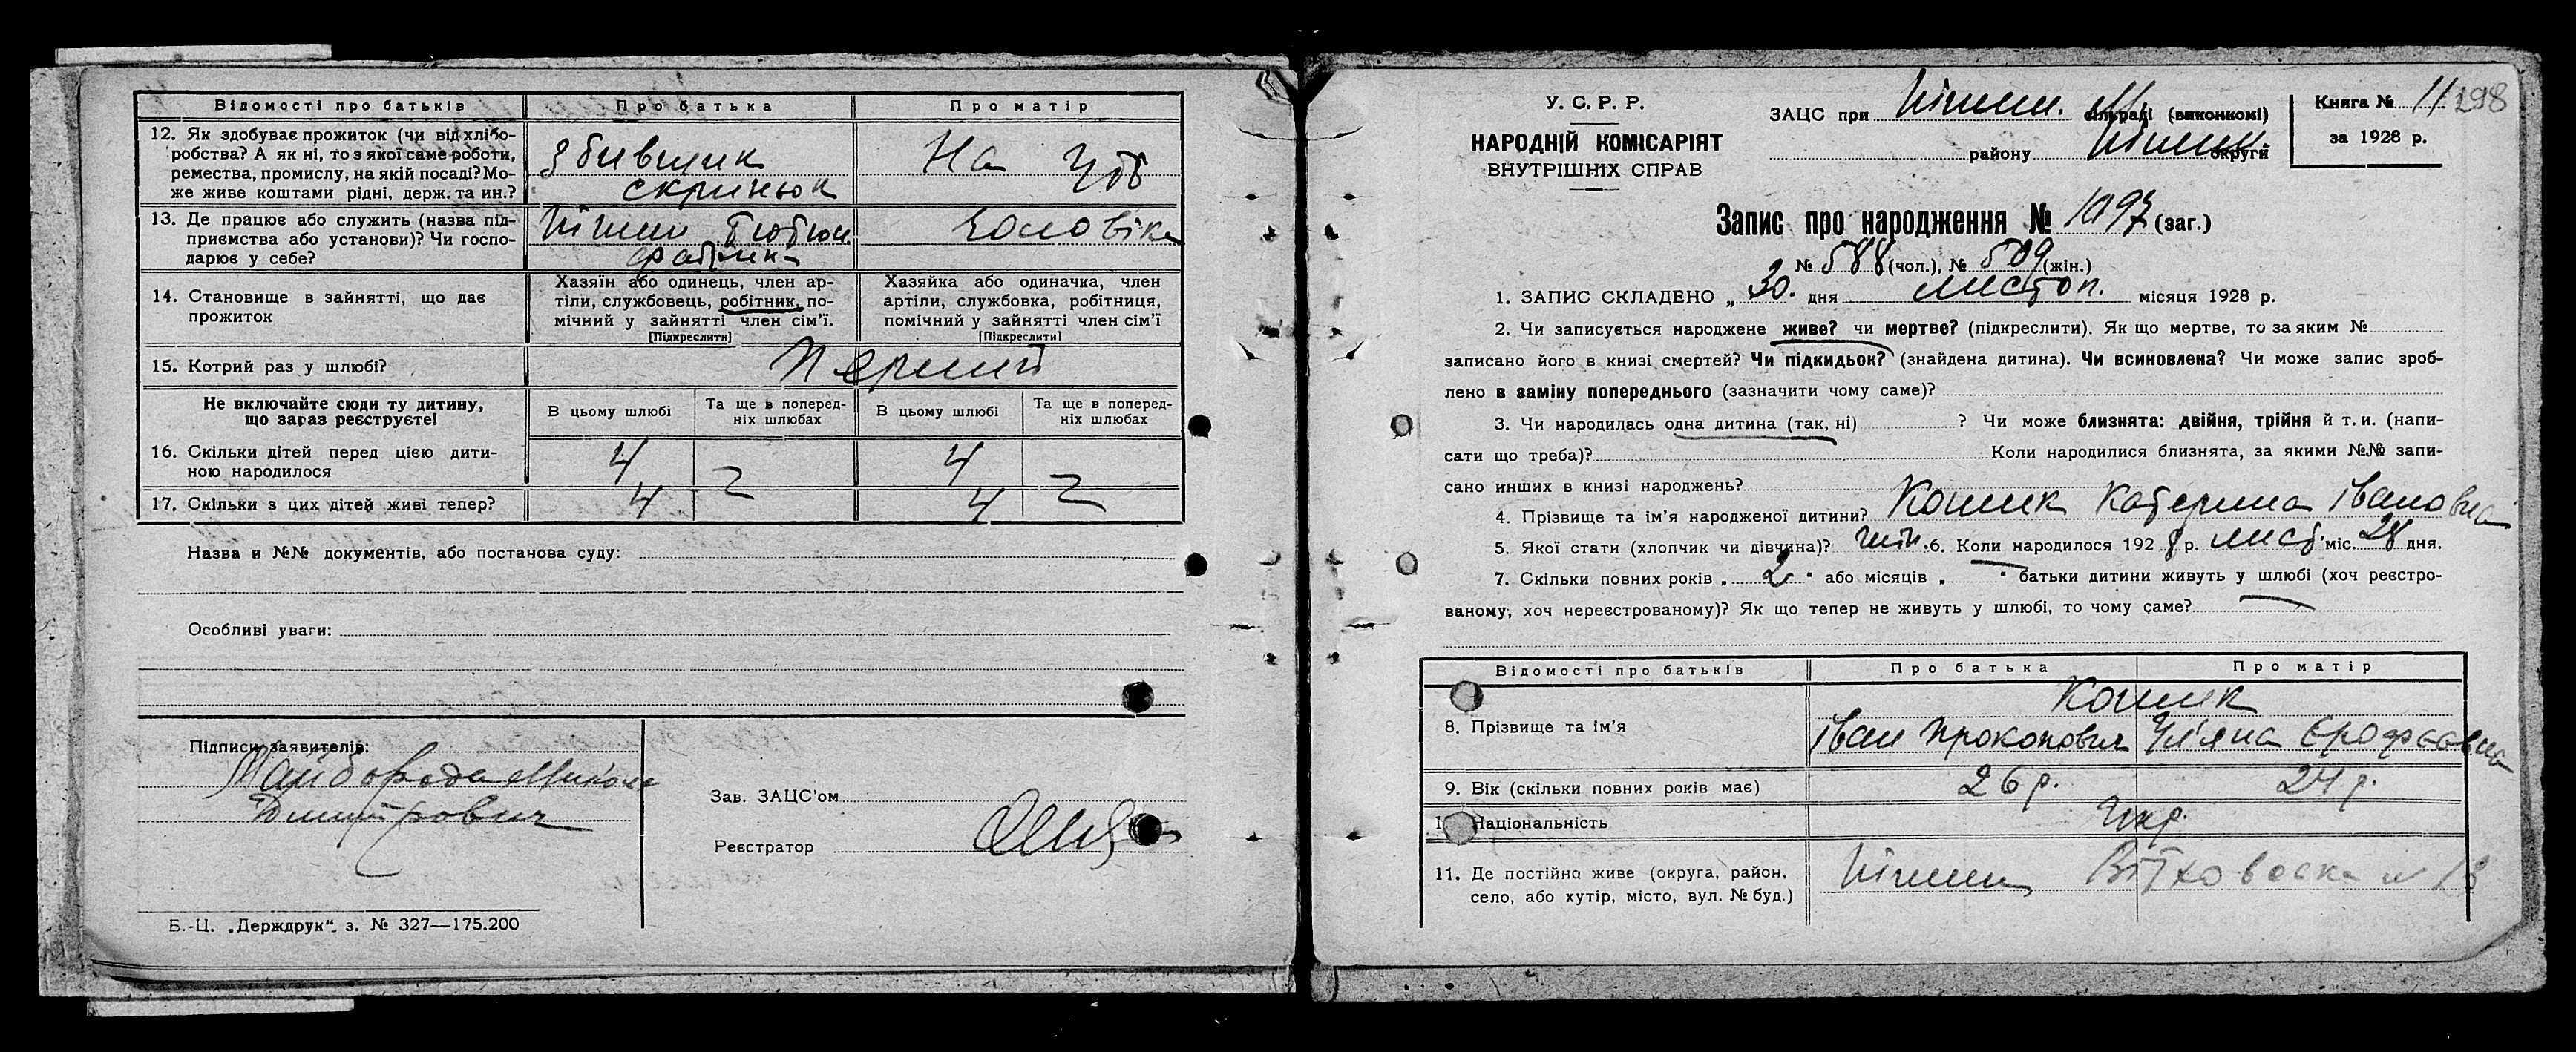 Відомості про батьків
Про батька
Про матір
12. Як здобуває прожиток (чи від хлібо-
робства? А як ні, то з якої саме роботи,
ремества, промислу, на якій посаді? Мо-
же живе коштами рідні, держ. та ин.?
збивщик
скриньок
На утр
13. Де працює або служить (назва під-
приємства або установи)? Чи госпо-
дарює у себе?
Ніжин тютюн.
фабрик
чоловіка
14. Становище в зайнятті, що дає
прожиток
Хазяїн або одинець, член ар-
тіли, службовець, робітник, по-
мічний у зайнятті член сім'ї.
[Підкреслити]
Хазяйка або одиначка, член
артіли, службовка, робітниця,
помічний у зайнятті член сім'ї
[Підкреслити]
15. Котрий раз у шлюбі?
Перший
Не включайте сюди ту дитину,
що зараз реєструєте!
В цьому шлюбі
Та ще в поперед-
ніх шлюбах
В цьому шлюбі
Та ще в поперед-
ніх шлюбах
16. Скільки дітей перед цією дити-
ною народилося
4
4
17. Скільки з цих дітей живі тепер?
4
4
Назва и №№ документів, або постанова суду:
Особливі уваги:
Підписи заявителів:
Майборода Микола
Дмитрович
Зав. ЗАЦС'ом
Реєстратор
Б.-Ц. „Держдрук“ з. № 327—175.200
У. С. Р. Р.
НАРОДНІЙ КОМІСАРІЯТ
ВНУТРІШНІХ СПРАВ
ЗАЦС при Ніжин. М сільраді (виконкомі)
району Ніжин. округи
Книга № 11
298
за 1928 р.
Запис про народження № 1097 (заг.)
№ 588 (чол.), № 509 (жін.)
1. ЗАПИС СКЛАДЕНО „ 30. дня листоп. місяця 1928 р.
2. Чи записується народжене живе? чи мертве? (підкреслити). Як що мертве, то за яким №
записано його в книзі смертей? Чи підкидьок? (знайдена дитина). Чи всиновлена? Чи може запис зроб-
лено в заміну попереднього (зазначити чому саме)?
3. Чи народилась одна дитина (так, ні) ? Чи може близнята: двійня, трійня й т. и. (напи-
сати що треба)? Коли народилися близнята, за якими №№ запи-
сано инших в книзі народжень?
4. Прізвище та ім'я народженої дитини? Кошик Катерина Івановна
5. Якої стати (хлопчик чи дівчина)? жін. 6. Коли народилося 1928 р. лист. міс. 28 дня.
7. Скільки повних років „ 2 “ або місяців „ “ батьки дитини живуть у шлюбі (хоч реєстро-
ваному, хоч нереєстрованому)? Як що тепер не живуть у шлюбі, то чому саме?
Відомості про батьків
Про батька
Про матір
8. Прізвище та ім'я
Кошик
Іван Прокопович
Ул'яна Єрофєєвна
9. Вік (скільки повних років має)
26 р.
24 р.
Національність
Укр.
11. Де постійно живе (округа, район,
село, або хутір, місто, вул. № буд.)
Ніжин